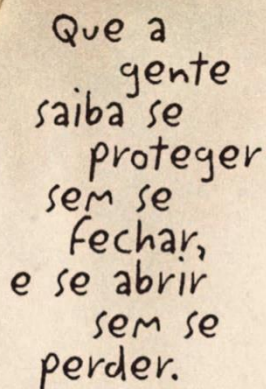 Que a
gente
saiba se
proteger
sem se
fechar,
e se abrir
sem se
perder.